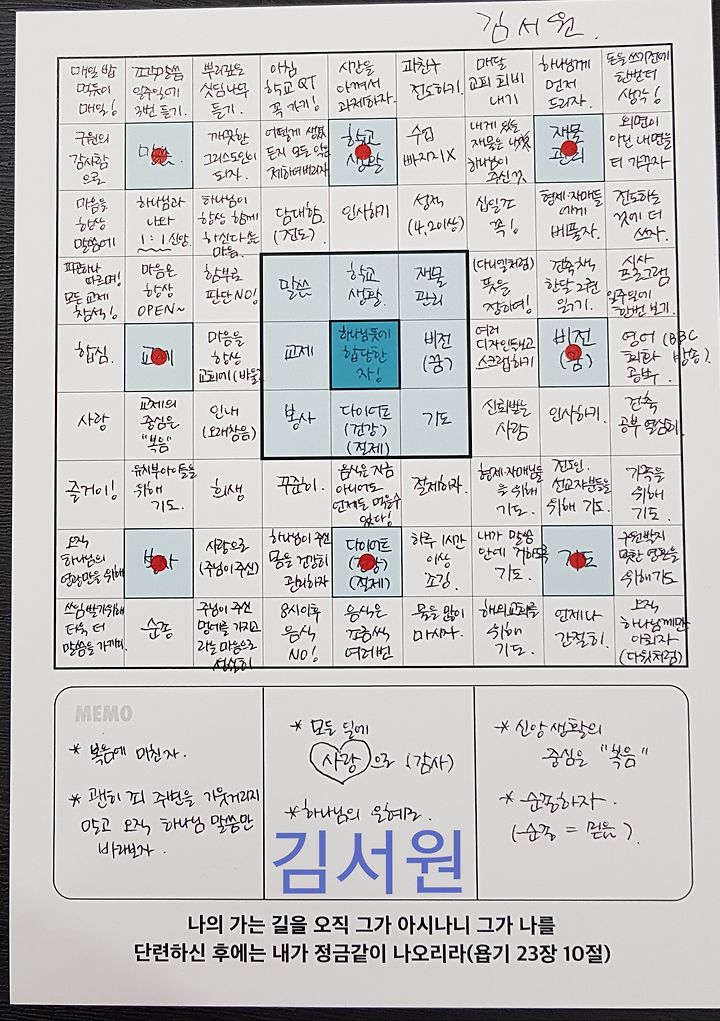 김서원
매일 밥
먹듯이
매일!
일주일에
3번 듣기.
뿌리깊은
싯딤나무
듣기.
아침
학교 QT
꼭 가기!
시간을
아껴서
과제하자.
과친구
전도하기.
매달
교회 회비
내기
하나님께
먼저
드리자.
돈을 쓰기전에
한번더
생각!
구원의
감사함
으로
말씀
깨끗한
그리스도인이
되자.
어떻게 생겼
든지 모든 악은
제하여버리자
학교
생활
수업
빠지지X
내게 있는
재물은
하나님이
주신 것
재물
관리
외면이
아닌 내면을
더 가꾸자
마음을
항상
말씀에
하나님과
나와
1:1 신앙.
하나님이
항상 함께
하신다 는
마음.
담대함.
(전도).
인사하기
성적
(4.2이상)
십일조
꼭!
형제·자매들
에게
베풀자.
전도하는
것에 더
쓰자.
따르며!
모든 교제
참석!
마음은
항상
OPEN~
함부로
판단 NO!
말씀
학교
생활
재물
관리
(다니엘처럼)
뜻을
정하여!
건축책
한달 2권
읽기.
시사
프로그램
일주일에
한번 보기.
합심.
교제
마음을
항상
교회에
교제
하나님 뜻에
합당한
자!
비전
(꿈)
여러
디자인
스크랩하기
비전
(꿈)
영어 (BBC
회화 방송).
공부.
사랑
교제의
중심은
"복음"
인내
(오래참음)
봉사
다이어트
(건강)
(절제)
기도
신뢰받는
사람
인사하기.
건축
공부 열심히.
즐거이!
유치부아이들을
위해
기도.
희생
꾸준히.
음식은 지금
아니어도
언제든 먹을수
있다!
절제하자.
형제·자매님들
을 위해
기도.
전도인.
선교사분들을
위해 기도.
가족을
위해
기도.
오직
하나님의
영광만을 위해
봉사
사랑으로
(주님이 주신)
하나님이 주신
몸을 건강히
관리하자
다이어트
(건강)
(절제)
하루 1시간
이상
조깅.
내가 말씀
안에 거하도록
기도.
기도
구원받지
못한 영혼을
위해 기도
쓰임 받기위해
더욱 더
말씀을 가까이.
순종
주님이 주신
멍에를 가지고
라는 마음으로
성실히
8시이후
음식
NO!
음식은
조금씩
여러번
물을 많이
마시자.
해외교회를
위해
기도.
언제나
간절히.
오직
하나님께만
아뢰자
(다윗처럼)
MEMO
* 복음에 미친자.
* 괜히 피 주변을 기웃거리지
말고 오직 하나님 말씀만
바라보자.
* 모든 일에
사랑으로 (감사)
* 하나님의 은혜로
* 신앙생활의
중심은 "복음"
* 순종하자.
(순종 = 믿음).
김서원
나의 가는 길을 오직 그가 아시나니 그가 나를
단련하신 후에는 내가 정금같이 나오리라(욥기 23장 10절)